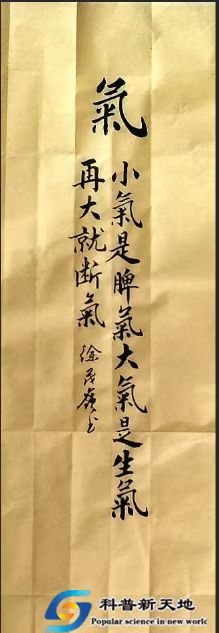 氣
小氣是脾氣大氣是生氣
再大就断氣
徐民
科普新天地
Popular science in new world